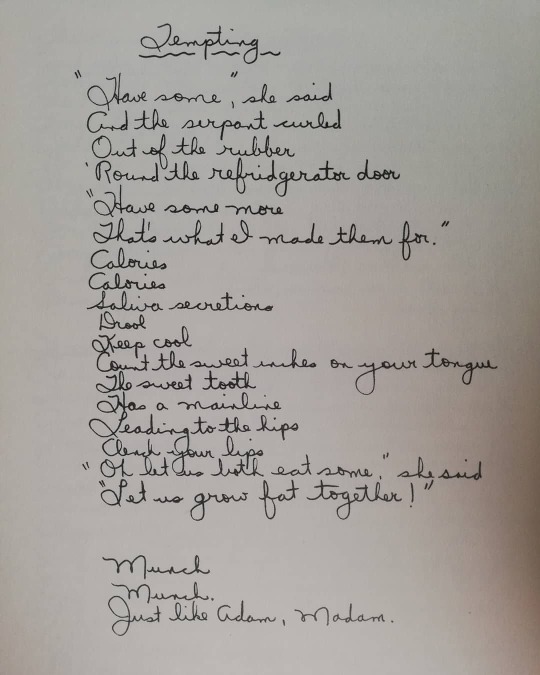 Tempting
"Have some", she said
And the serpant curled
Out of the rubber
'Round the refridgerator door
"Have some more
That's what I made them for."
Calories
Calories
Saliva secretions
Drool
Keep cool
Count the sweet inches on your tongue
The sweet tooth
Has a mainline
Leading to the hips
Clench your lips
"Oh let us both eat some," she said
"Let us grow fat together!"
Munch
Munch.
Just like Adam, Madam.